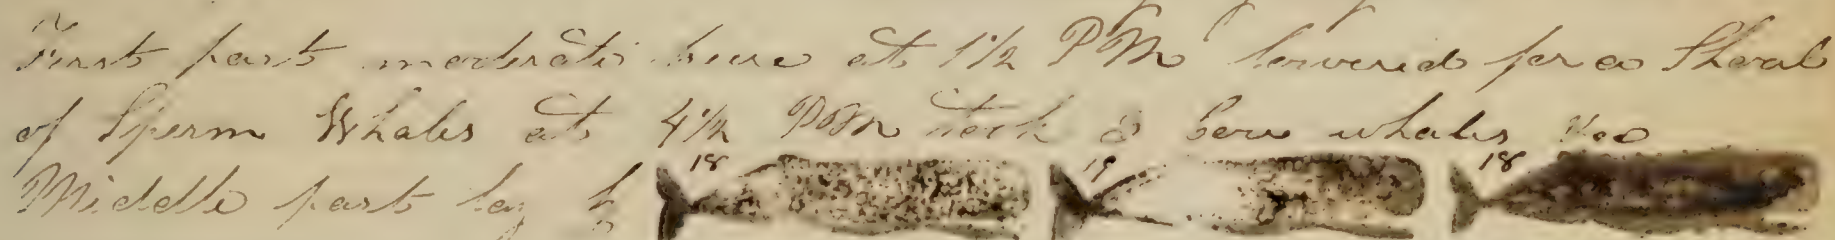 First part moderate at 1½ PM lowered for a Shoal
of Sperm Whales at 4½ PM took 3 Cow whales
Middle part lay
18 19 18